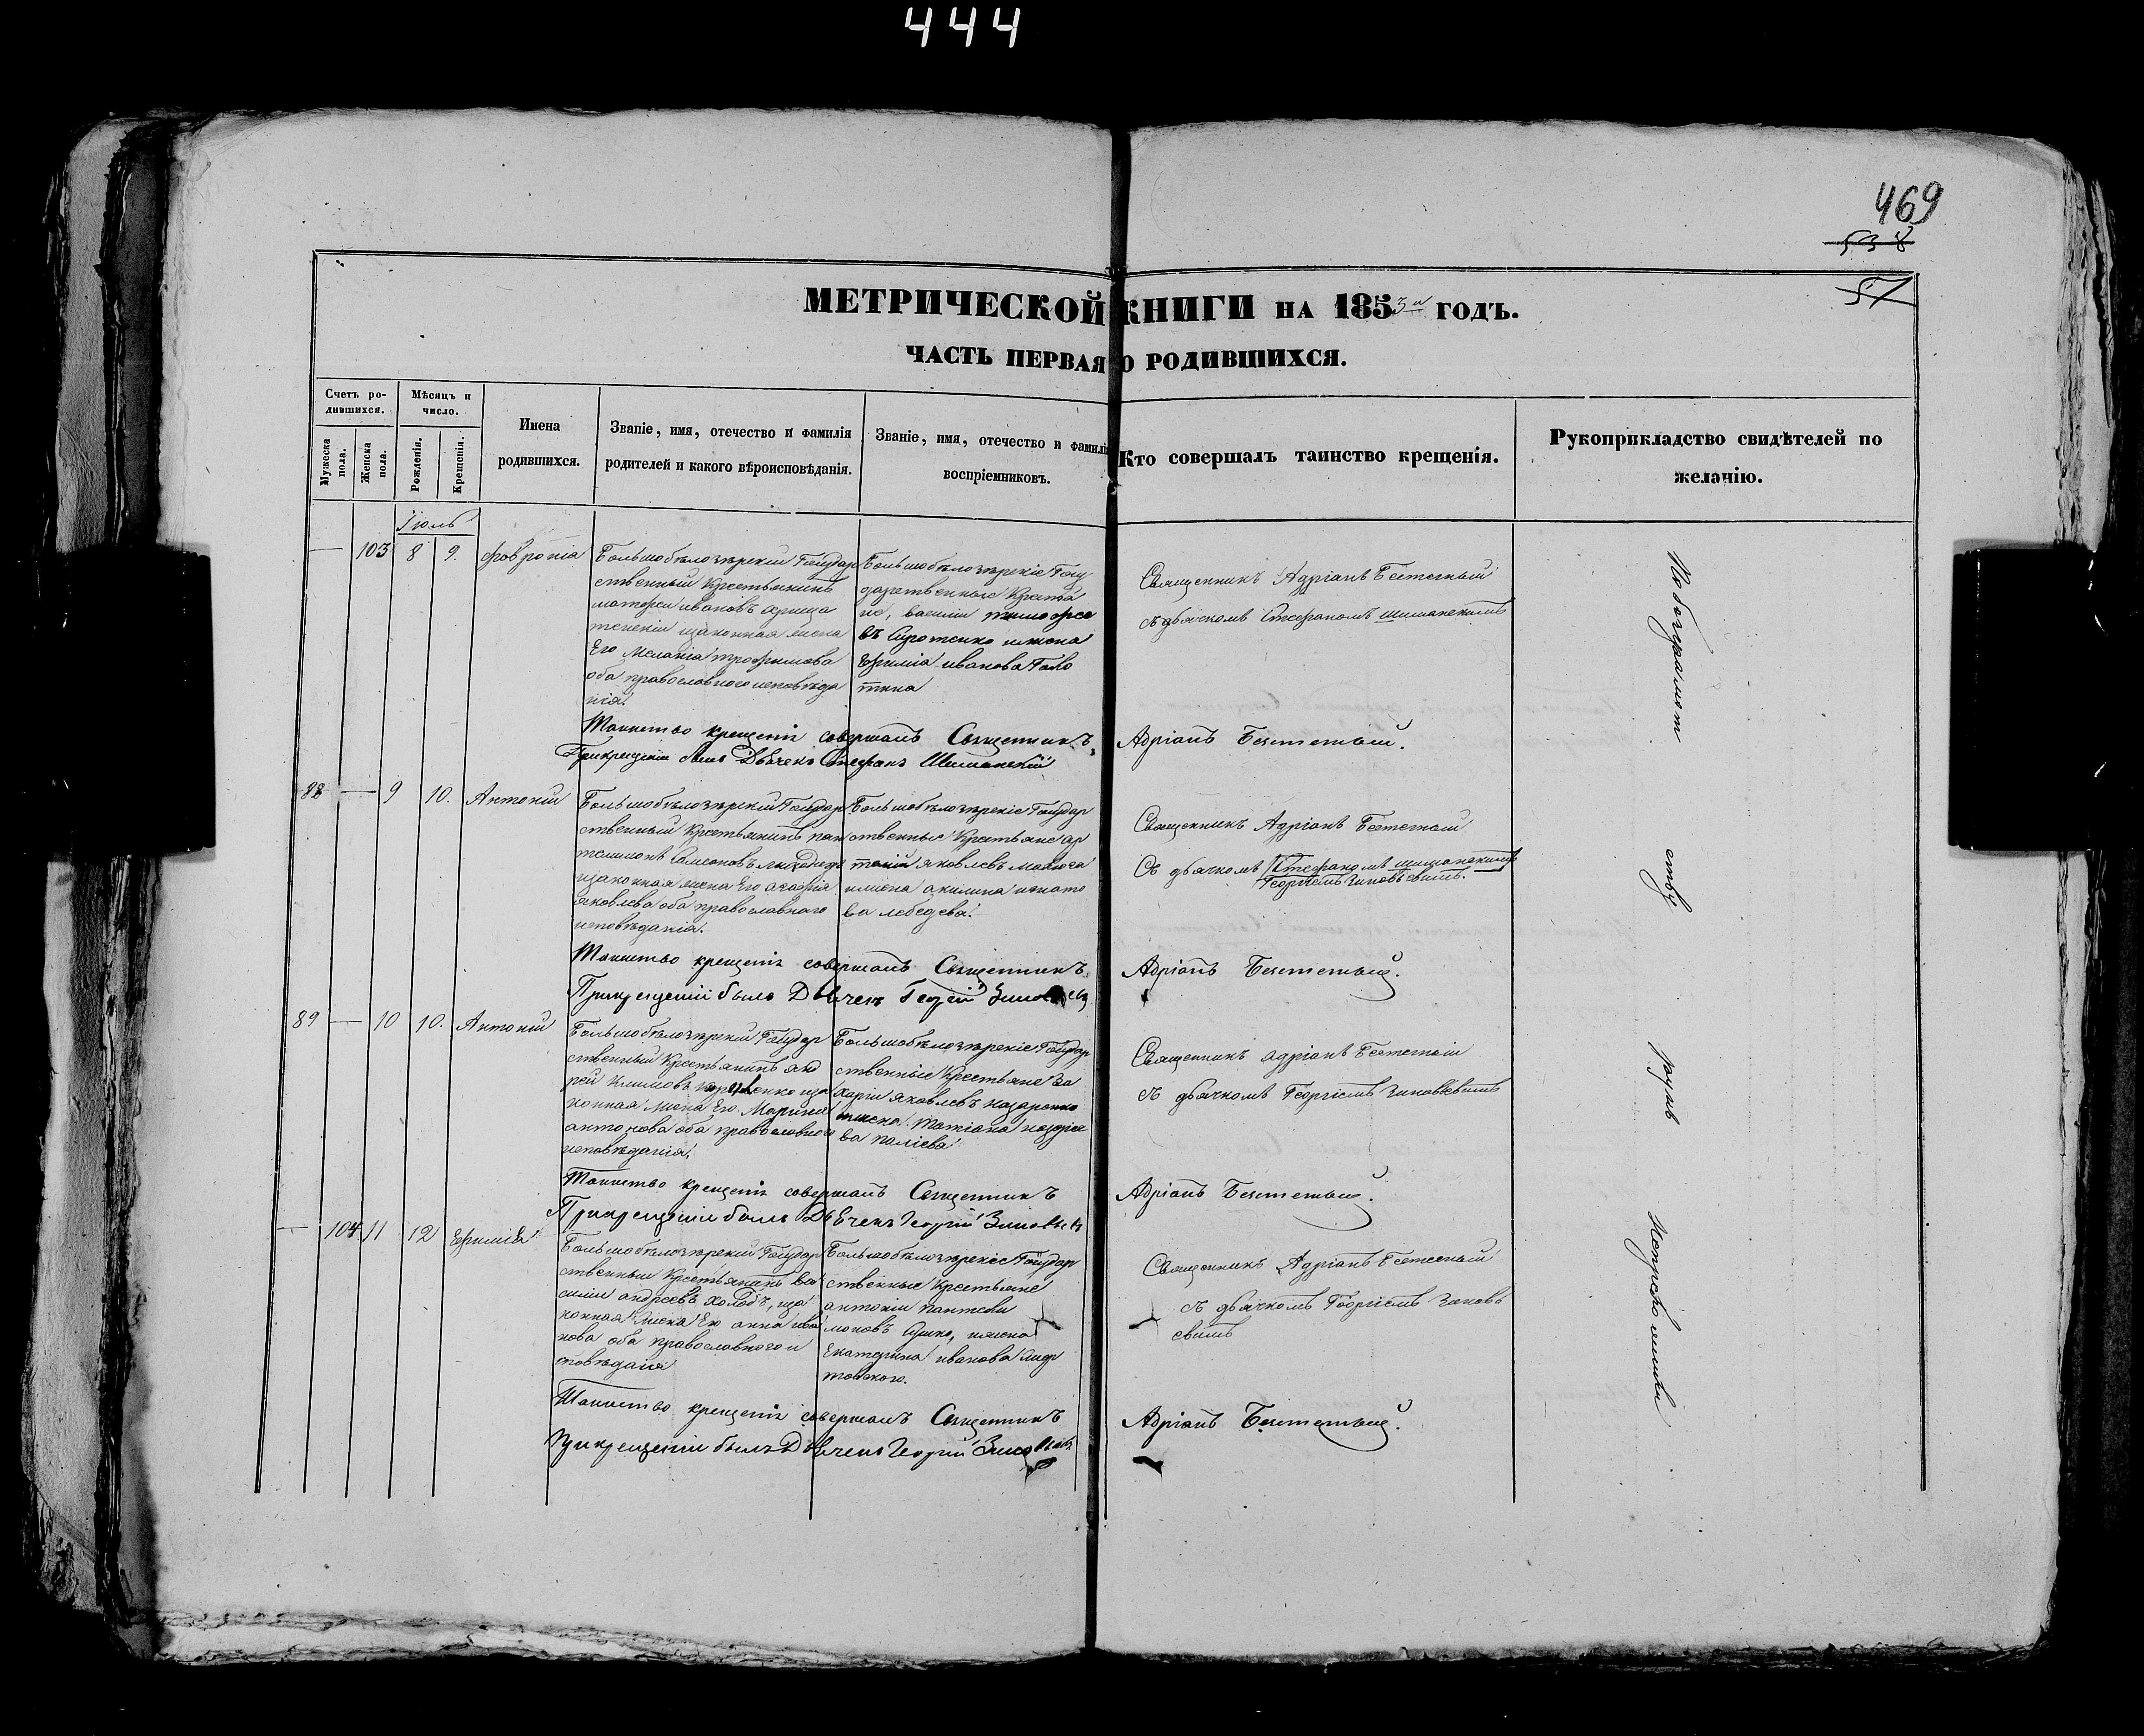 444
469
538
51
МЕТРИЧЕСКОЙ КНИГИ НА 1853й ГОДЪ.
ЧАСТЬ ПЕРВАЯ О РОДИВШИХСЯ.
Счетъ родившихся.
Мужеска пола.
Женска пола.
Мѣсяцъ и число.
Рожденія.
Крещенія.
Имена родившихся.
Званіе, имя, отечество и фамилія
родителей и какого вѣроисповѣданія.
Званіе, имя, отечество и фамилія
воспріемниковъ.
Кто совершалъ таинство крещенія.
Рукоприкладство свидѣтелей по
желанію.
Іюль
103 8 9. Февронія
Большобѣлозерский Государ
ственный Крестьянинъ
матфеи ивановъ
изаконная жена
Его Меланія трофимова
оба православного исповѣда
нія.
Большобѣлозерскіе Госу
дарственные Крестья
не, василіи тимофее
въ Сиротенко ижена
Ефимія иванова
Священникъ Адріанъ
съ дьячкомъ Стефаномъ шиманскимъ
Таинство крещенія совершалъ Священникъ Адріанъ
Прикрещеніи былъ Дьячекъ Стефанъ Шиманскій
88 9 10. Антоній
Большобѣлозерский Государ
ственный Крестьянинъ пан
телимонъ Самсоновъ
изаконная жена Его агафія
яковлева оба православнаго
исповѣданія.
Большобѣлозерскіе Государ
ственные Крестьяне ар
яковлевъ
ижена акилина игнато
ва лебедева.
Священникъ Адріанъ
Съ дьячкомъ Стефаномъ шиманскимъ
Георгіемъ Зиновьевымъ.
Таинство крещенія совершалъ Священникъ Адріанъ
Прикрещеніи былъ Дьячекъ Георгій Зиновьевъ
89 10 10. Антоній
Большобѣлозерский Государ
ственный Крестьянинъ анд
рей Климовъ иза
конная жена Его Марина
антонова оба православного
исповѣданія.
Большобѣлозерскіе Государ
ственные Крестьяне За
харій яковлевъ назаренко
ижена татіана назарье
ва паліева
Священникъ адріанъ
съ дьячкомъ Георгіемъ Зиновьевымъ
Таинство крещенія совершалъ Священникъ Адріанъ
Прикрещеніи былъ Дьячекъ Георгій Зиновьевъ
104 11 12 Ефимія
Большобѣлозерский Государ
ственный Крестьянинъ ва
силіи андреевъ холодъ, иза
конная жена Его анна ива
нова оба православного и
сповѣданія
Большобѣлозерскіе Государ
ственные Крестьяне
антоніи пантели
моновъ ижена
Екатерина иванова
Священникъ Адріанъ
съ дьячкомъ Георгіемъ Зиновь
евымъ
Таинство крещенія совершалъ Священникъ Адріанъ
Прикрещеніи былъ Дьячекъ Георгій Зиновьевъ